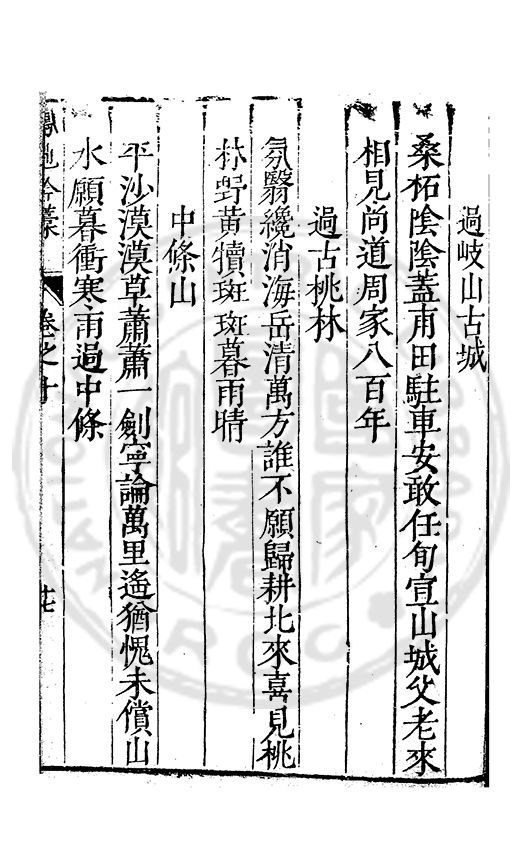 過岐山古城
桑柘陰陰蓋甫田駐車安敢任旬宣山城父老來
相見尚道周家八百年
過古桃林
氛翳纔消海岳清萬方誰不願歸耕北來喜見桃
林野黃犢斑斑暮雨晴
中條山
平沙漠漠草蕭蕭一劍寧論萬里遙猶愧未償山
水願暮衝寒雨過中條
卷之十
十七